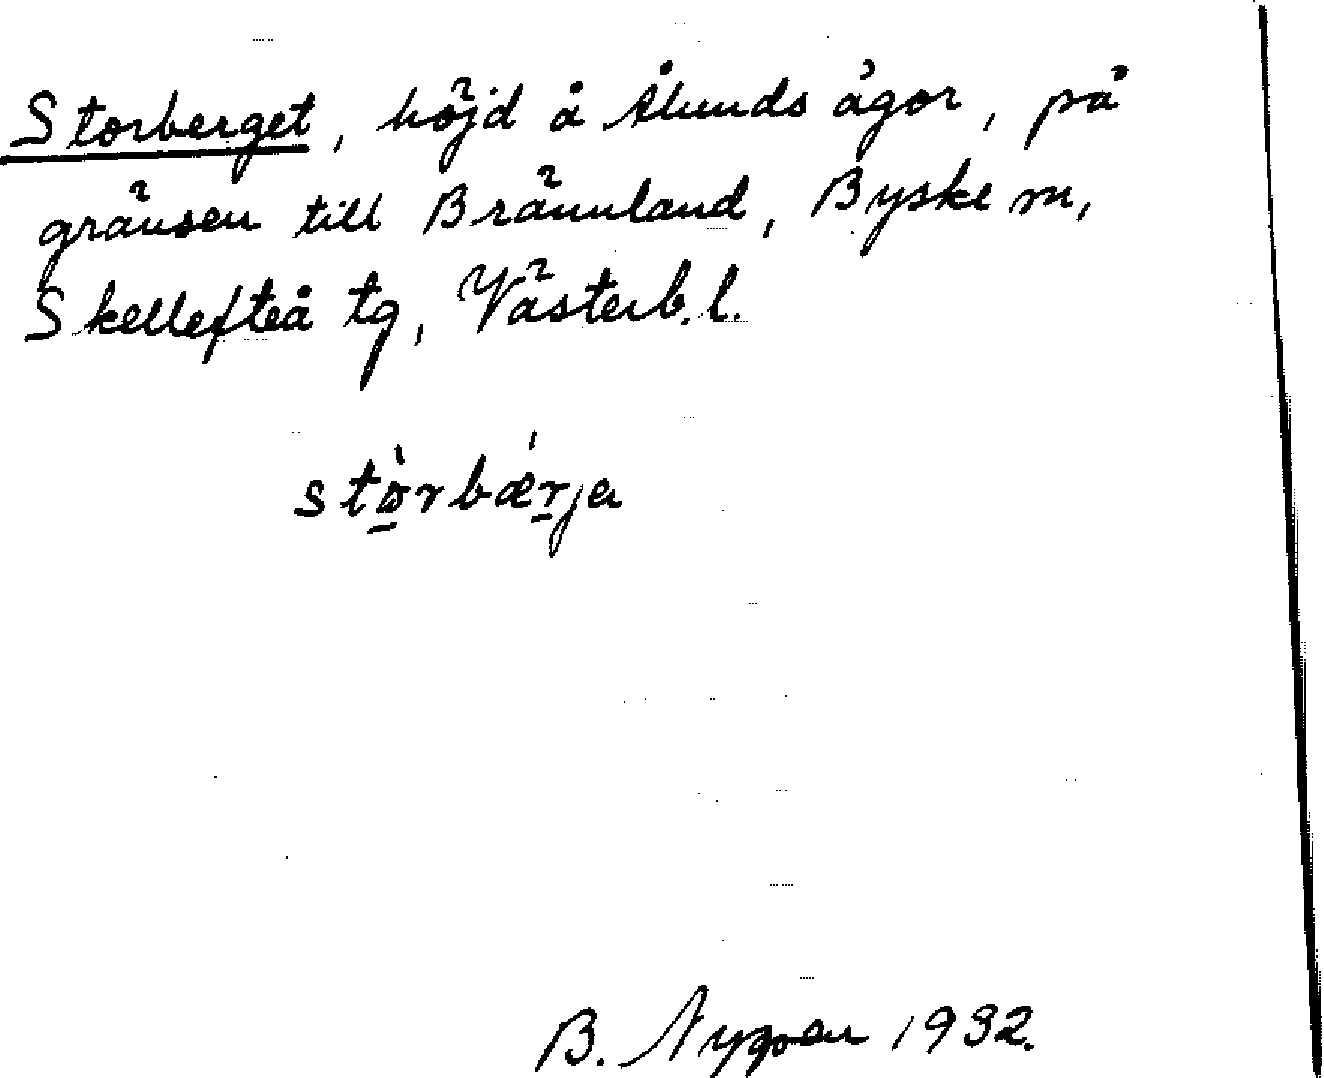 Storberget, höjd å Ålunds ägor, på
gränsen till Brännland, Byske sn,
Skellefteå tg, Västerb. l.
stòrbǽrja
B. 1932.